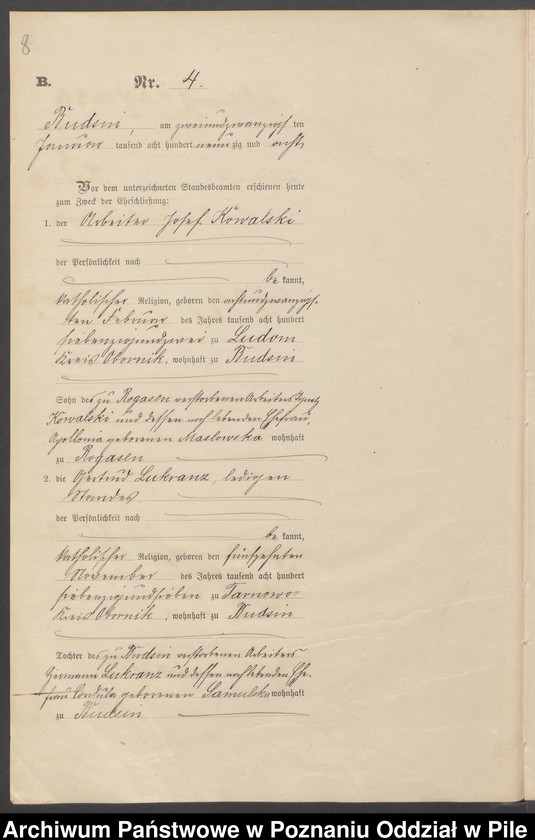 8
B. Nr. 4.
Budsin, am zweiundzwanzigsten
Januar tausend acht hundert neunzig und acht
Vor dem unterzeichneten Standesbeamten erschienen heute
zum Zweck der Eheschließung:
1. der Arbeiter Josef Kowalski
der Persönlichkeit nach
be kannt,
katholischer Religion, geboren den achtundzwanzigs-
ten Februar des Jahres tausend acht hundert
siebenzigundzwei zu Ludom
Kreis Obornik, wohnhaft zu Budsin
Sohn des zu Rogasen verstorbenen Arbeiters
Kowalski und dessen noch lebenden Ehefrau,
Apollonia geborenen Maslowska wohnhaft
zu Rogasen
2. die Gertrud Lukranz, ledigen
Standes
der Persönlichkeit nach
be kannt,
katholischer Religion, geboren den fünfzehnten
November des Jahres tausend acht hundert
siebenzigundsieben zu Tarnowo
Kreis Obornik, wohnhaft zu Budsin
Tochter des zu Budsin verstorbenen Arbeiters
Hermann Lukranz und dessen noch lebenden Ehe-
frau Cordula geborenen wohnhaft
zu Budsin
Archiwum Państwowe w Poznaniu Oddział w Pile